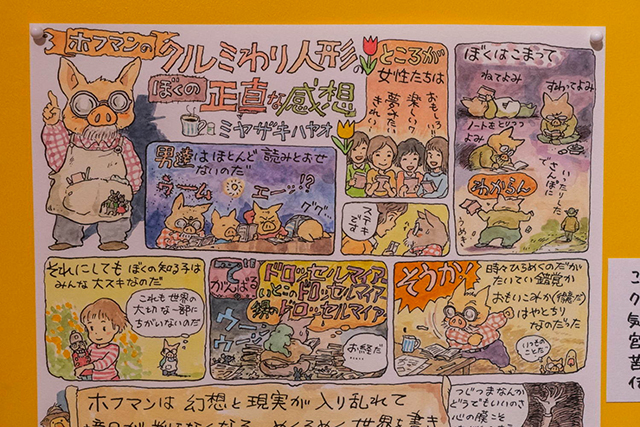 ホフマンの
クルミわり人形の
ぼくの
正直な感想
ミヤザキハヤオ
ところが
女性たちは
おもしろい
楽しい
夢みたい
きれい
ステキ
です
ぼくはこまって
ねてよみ
すわってよみ
ノートをとりつつ
よみ
わからん
さんぽに
男達はほとんど読みとおせ
ないのだ
ウーム
エーッ!?
ググ…
それにしてもぼくの知る子は
みんな大スキなのだ
これも世界の
大切な一部に
ちがいないのだ
で
がんばる
ドロッセルマイアー
いとこのドロッセルマイアー
甥のドロッセルマイアー
ウーン
ウーン
お経だ……
そうか!
時々ひらめくのだが
たいてい錯覚か
おもいこみか
はやとちり
なのだった
いつもの
ことだ
ホフマンは幻想と現実が入り乱れて
つじつまなんか
どうでもいいのさ
心の膜こそ